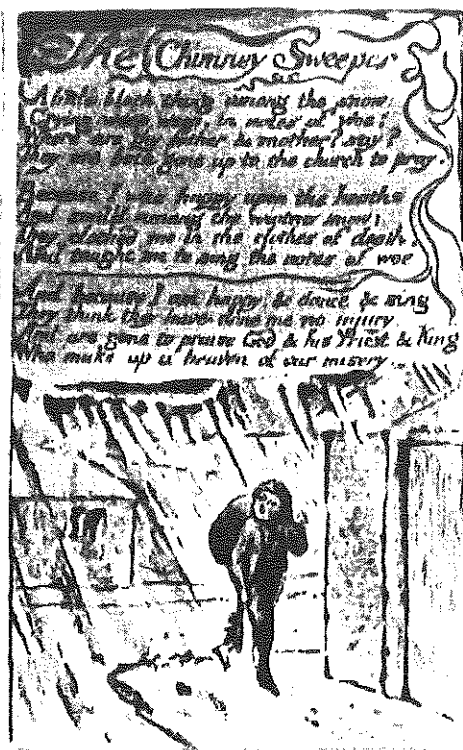 The Chimney Sweeper
A little black thing among the snow:
Crying weep, weep, in notes of woe!
Where are thy father & mother? say?
They are both gone up to the church to pray.
Because I was happy upon the heath
And smil'd among the winters snow:
They clothed me in the clothes of death
And taught me to sing the notes of woe
And because I am happy, & dance & sing
They think they have done me no injury
And are gone to praise God & his Priest & King
Who make up a heaven of our misery